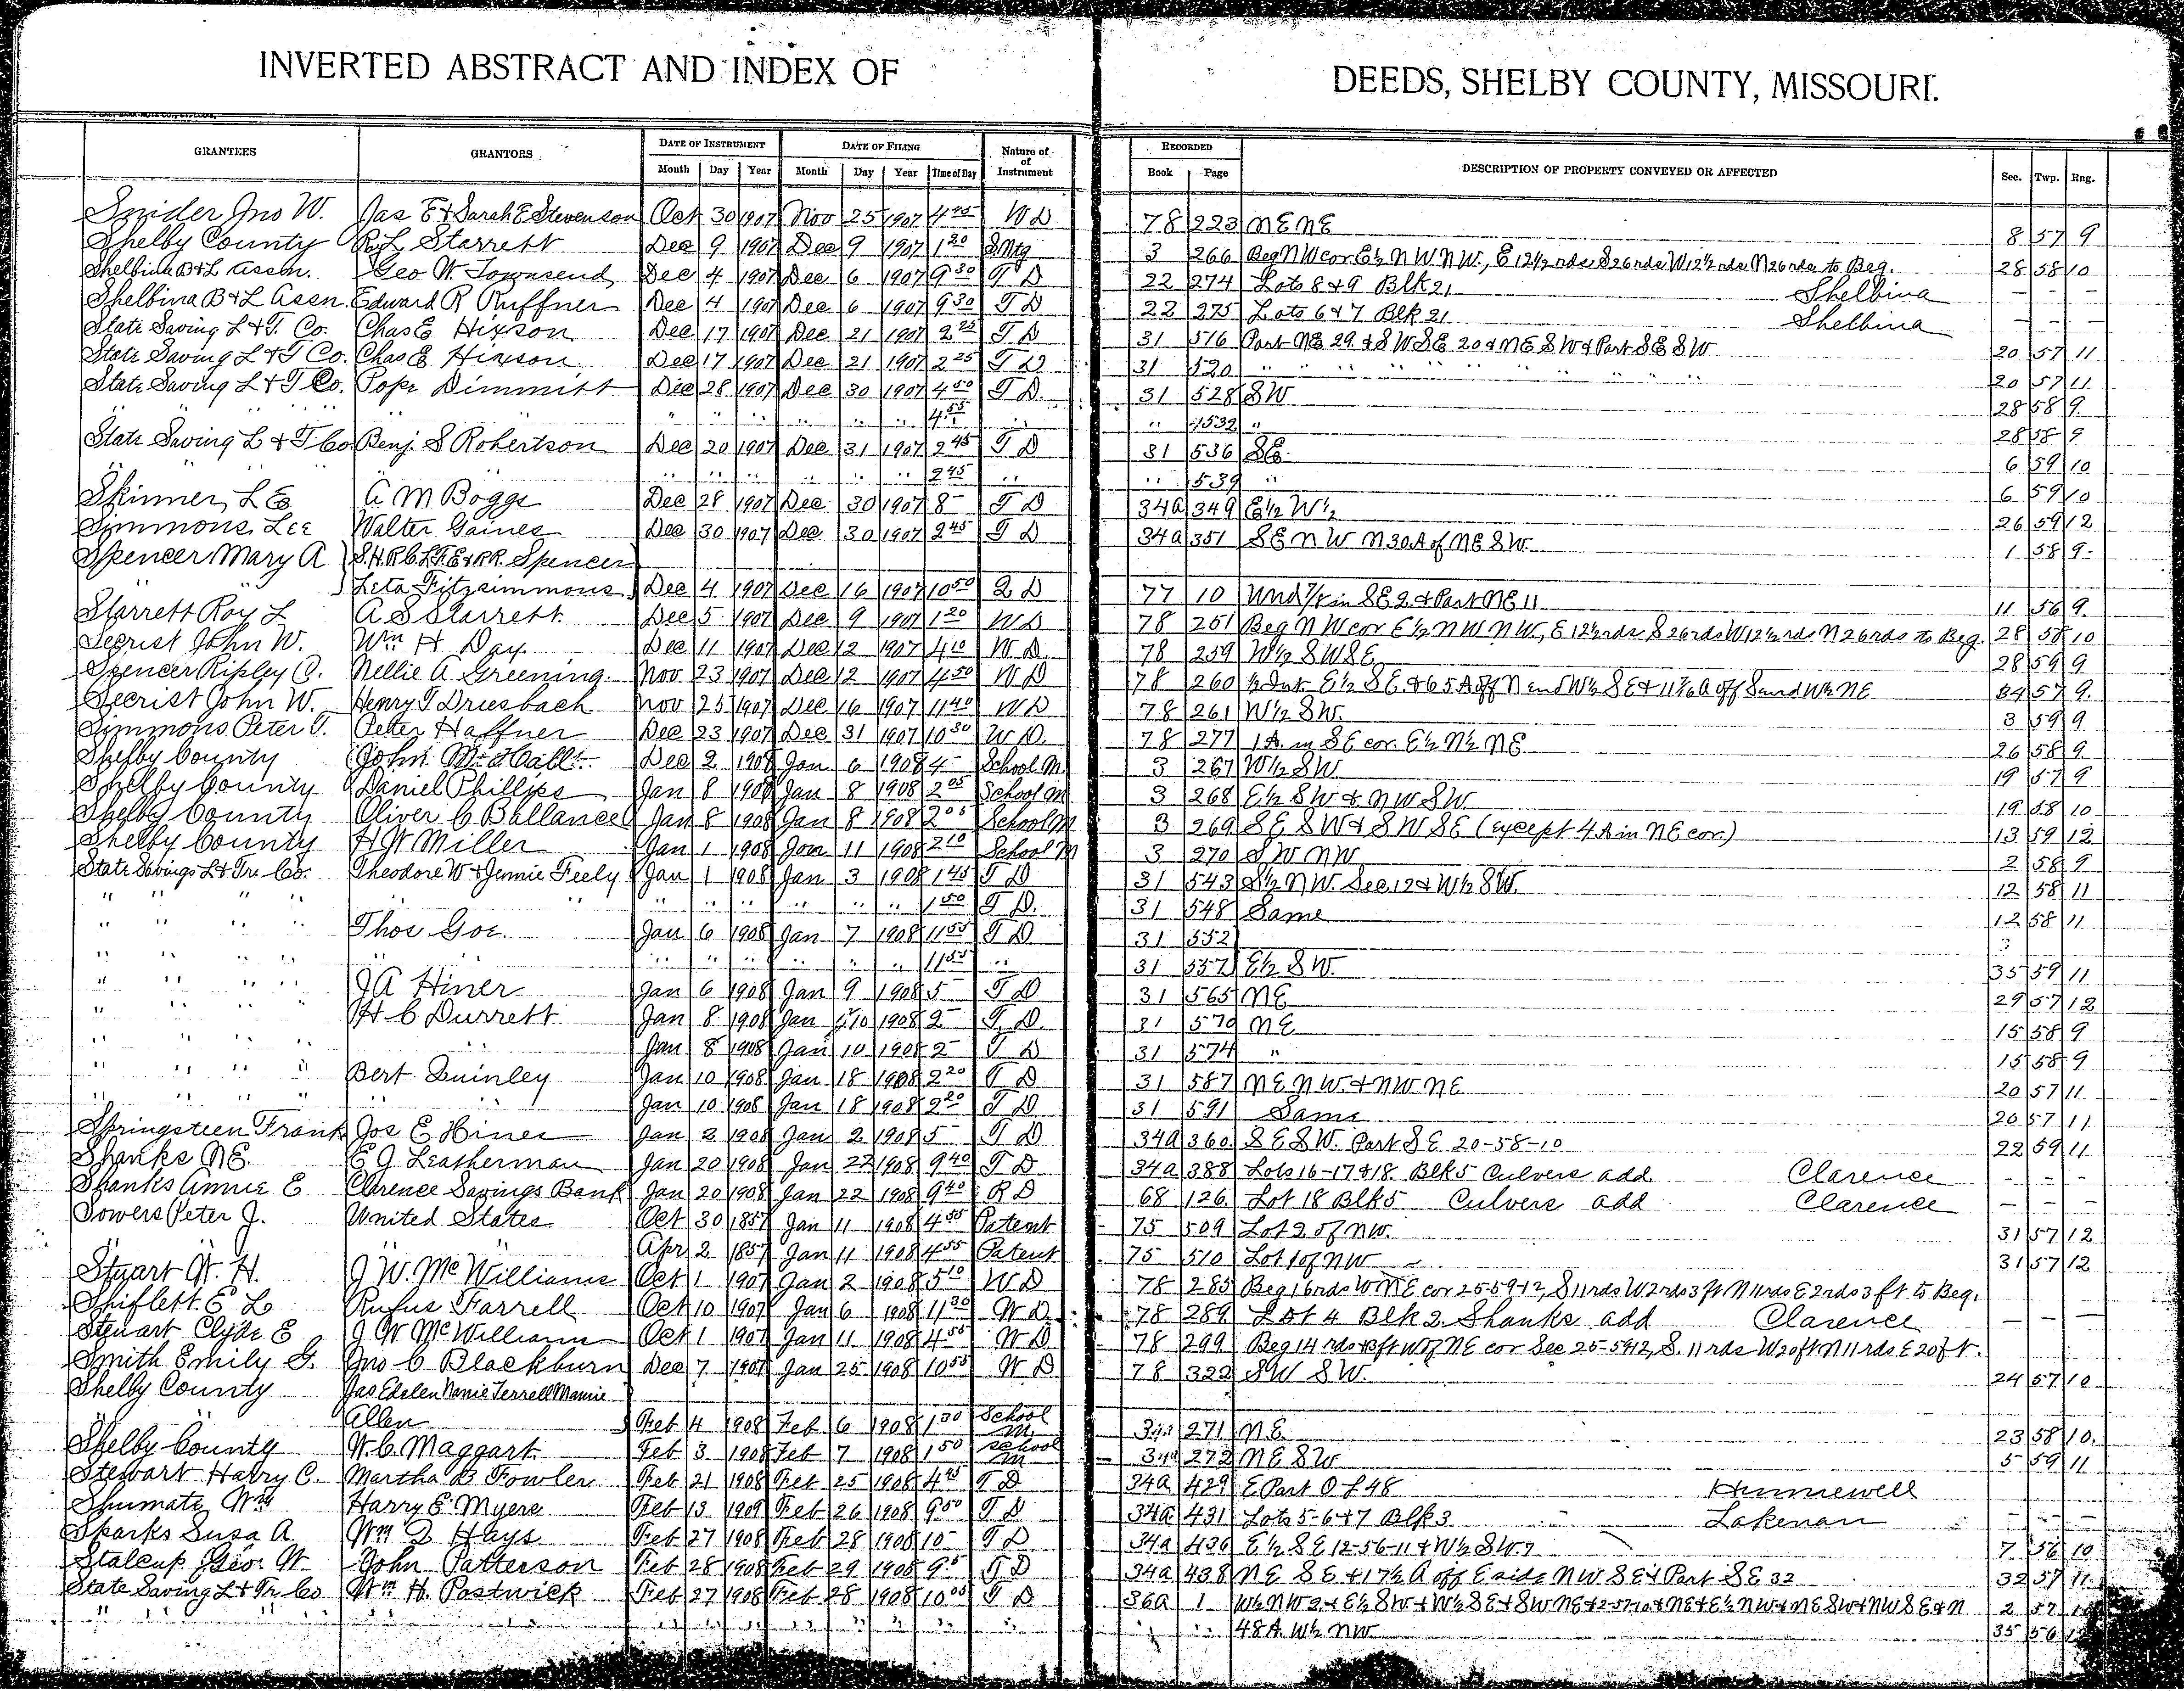 INVERTED ABSTRACT AND INDEX OF DEEDS, SHELBY COUNTY, MISSOURI.
GRANTEES GRANTORS DATE OF INSTRUMENT DATE OF FILING Nature of of Instrument RECORDED DESCRIPTION OF PROPERTY CONVEYED OR AFFECTED Sec. Twp. Rng.
Month Day Year Month Day Year Time of Day Book Page
Snider Jno W. Jas E & Sarah E Stevenson Oct 30 1907 Nov 25 1907 4 45 W D 78 223 NE NE 8 57 9
Shelby County R L Starrett Dec 9 1907 Dec 9 1907 1 20 S Mtg 3 266 Beg NW cor E½ NW NW, E 12½ rds S 26 rds W 12½ rds N 26 rds to Beg. 28 58 10
Shelbina B & L Assn. Geo W. Townsend Dec 4 1907 Dec 6 1907 9 30 T D 22 274 Lots 8 & 9 Blk 21 Shelbina — — —
Shelbina B & L Assn. Edward R Ruffner Dec 4 1907 Dec 6 1907 9 30 T D 22 275 Lots 6 & 7 Blk 21 Shelbina — — —
State Saving L & T. Co. Chas E Hixson Dec 17 1907 Dec 21 1907 2 25 T D 31 516 Part NE 29 & SW SE 20 & NE SW & Part SE SW 20 57 11
State Saving L & T Co. Chas E Hixson Dec 17 1907 Dec 21 1907 2 25 T D 31 520 " " " " " " " " 20 57 11
State Saving L & T Co. Pope Dimmitt Dec 28 1907 Dec 30 1907 4 50 T D. 31 528 SW 28 58 9
" " " " " " " " " " 4 55 " " 532 " 28 58 9
State Saving L & T Co Benj. S Robertson Dec 20 1907 Dec 31 1907 2 45 T D 31 536 SE 6 59 10
" " " " " " " " 2 45 " " 539 " 6 59 10
Skinner, L E A M Boggs Dec 28 1907 Dec 30 1907 8 - T D 34a 349 E½ W½ 26 59 12
Simmons, Lee Walter Gaines Dec 30 1907 Dec 30 1907 2 45 T D 34a 351 SE NW N 30 A of NE SW 1 58 9
Spencer Mary A S.H. R.C. L.T. E & R.R. Spencer
" " Leta Fitzsimmons Dec 4 1907 Dec 16 1907 10 50 Q D 77 10 Und in SE 2 & Part NE 11 11 56 9
Starrett Roy L A S Starrett Dec 5 1907 Dec 9 1907 1 20 W D 78 251 Beg NW cor E½ NW NW, E 12½ rds S 26 rds W 12½ rds N 26 rds to Beg. 28 58 10
Secrist John W. Wm H Day Dec 11 1907 Dec 12 1907 4 10 W D 78 259 W½ SW SE 28 59 9
Spencer Ripley C. Nellie A Greening Nov 23 1907 Dec 12 1907 4 50 W D 78 260 ½ Int E½ SE & 65 A off N end W½ SE & off S end W½ NE 34 57 9
Secrist John W. Henry T Driesbach Nov 25 1907 Dec 16 1907 11 40 W D 78 261 W½ SW. 3 59 9
Simmons Peter T. Peter Haffner Dec 23 1907 Dec 31 1907 10 30 W D. 78 277 1 A. in SE cor. E½ N½ NE 26 58 9
Shelby County John Dec 2 1908 Jan 6 1908 4 - School M 3 267 W½ SW 19 57 9
Shelby County Daniel Phillips Jan 8 1908 Jan 8 1908 2 05 School M 3 268 E½ SW & NW SW 19 58 10
Shelby County Oliver C Ballance Jan 8 1908 Jan 8 1908 2 05 School M 3 269 SE SW & SW SE (except 4 A in NE cor.) 13 59 12
Shelby County H W Miller Jan 1 1908 Jan 11 1908 2 10 School M 3 270 SW NW 2 58 9
State Savings L & Tr. Co. Theodore W & Jennie Feely Jan 1 1908 Jan 3 1908 1 45 T D 31 543 S½ NW. Sec 12 & W½ SW. 12 58 11
" " " " " " " " " " 1 50 T D. 31 548 Same 12 58 11
" " " " Thos Goe. Jan 6 1908 Jan 7 1908 11 55 T D 31 552
" " " " " " " " " " " 11 55 " 31 557 E½ SW. 35 59 11
" " " " J A Hiner Jan 6 1908 Jan 9 1908 5 - T D 31 565 NE 29 57 12
" " " " H C Durrett Jan 8 1908 Jan 10 1908 2 - T. D. 31 570 NE 15 58 9
" " " " Jan 8 1908 Jan 10 1908 2 - T D 31 574 " 15 58 9
" " " " Bert Quinley Jan 10 1908 Jan 18 1908 2 20 T D 31 587 NE NW. & NW NE 20 57 11
" " " " " " Jan 10 1908 Jan 18 1908 2 20 T D 31 591 Same 20 57 11
Springsteen Frank Jos E Hines Jan 2 1908 Jan 2 1908 5 - T D 34a 360 SE SW. Part SE 20-58-10 22 59 11
Shanks N E. E J Leatherman Jan 20 1908 Jan 22 1908 9 40 T D 34a 388 Lots 16-17 & 18. Blk 5 Culvers add. Clarence - - -
Shanks Annie E Clarence Savings Bank Jan 20 1908 Jan 22 1908 9 40 R D 68 126 Lot 18 Blk 5 Culvers add Clarence — — —
Sowers Peter J. United States Oct 30 1857 Jan 11 1908 4 55 Patent 75 509 Lot 2 of NW. 31 57 12
" " Apr 2 1857 Jan 11 1908 4 55 Patent 75 510 Lot 1 of NW 31 57 12
Stuart W. H. J W. McWilliams Oct 1 1907 Jan 2 1908 5 10 W D 78 285 Beg 16 rds W NE cor 25-59-12, S 11 rds W 2 rds 3 ft N 11 rds E 2 rds 3 ft to Beg.
Shiflett E L Rufus Farrell Oct 10 1907 Jan 6 1908 11 30 W D 78 289 Lot 4 Blk 2. Shanks add Clarence — — —
Stewart Clyde E J W McWilliams Oct 1 1907 Jan 11 1908 4 55 W D 78 299 Beg 14 rds & 13 ft W of NE cor Sec 25-59 12, S. 11 rds W 20 ft N 11 rds E 20 ft.
Smith Emily F. Jno C Blackburn Dec 7 1907 Jan 25 1908 10 55 W D 78 322 SW SW. 24 57 10
Shelby County Jas Edelen Nanie Terrell Mamie
" " Allen Feb 4 1908 Feb 6 1908 1 30 School M. 271 NE 23 58 10
Shelby County W. C. Maggart Feb 3 1908 Feb 7 1908 1 50 School M 272 NE SW 5 59 11
Stewart Harry C. Martha B Fowler Feb 21 1908 Feb 25 1908 4 45 T D 34a 429 E Part O L 48 Hunnewell
Shumate, Wm Harry E Myers Feb 13 1909 Feb 26 1908 9 50 T D 34a 431 Lots 5-6 & 7 Blk 3 Lakenan
Sparks Susa A. Wm D Hays Feb 27 1908 Feb 28 1908 10 - T D 34a 436 E½ SE 12-56-11 & W½ SW 7 7 56 10
Stalcup Geo. W John Patterson Feb 28 1908 Feb 29 1908 T D 34a 438 NE SE & 17½ A off E side NW SE & Part SE 32 32 57 11
State Saving L & Tr Co Wm H. Postwick Feb 27 1908 Feb 28 1908 10 05 T D 36a 1 W½ NW 2 & E½ SW & W½ SE & SW NE & NE & E½ NW & NE SW & NW SE & N 2 57
" " " " " " " " " " " " " " " 48 A. W½ NW 35 56